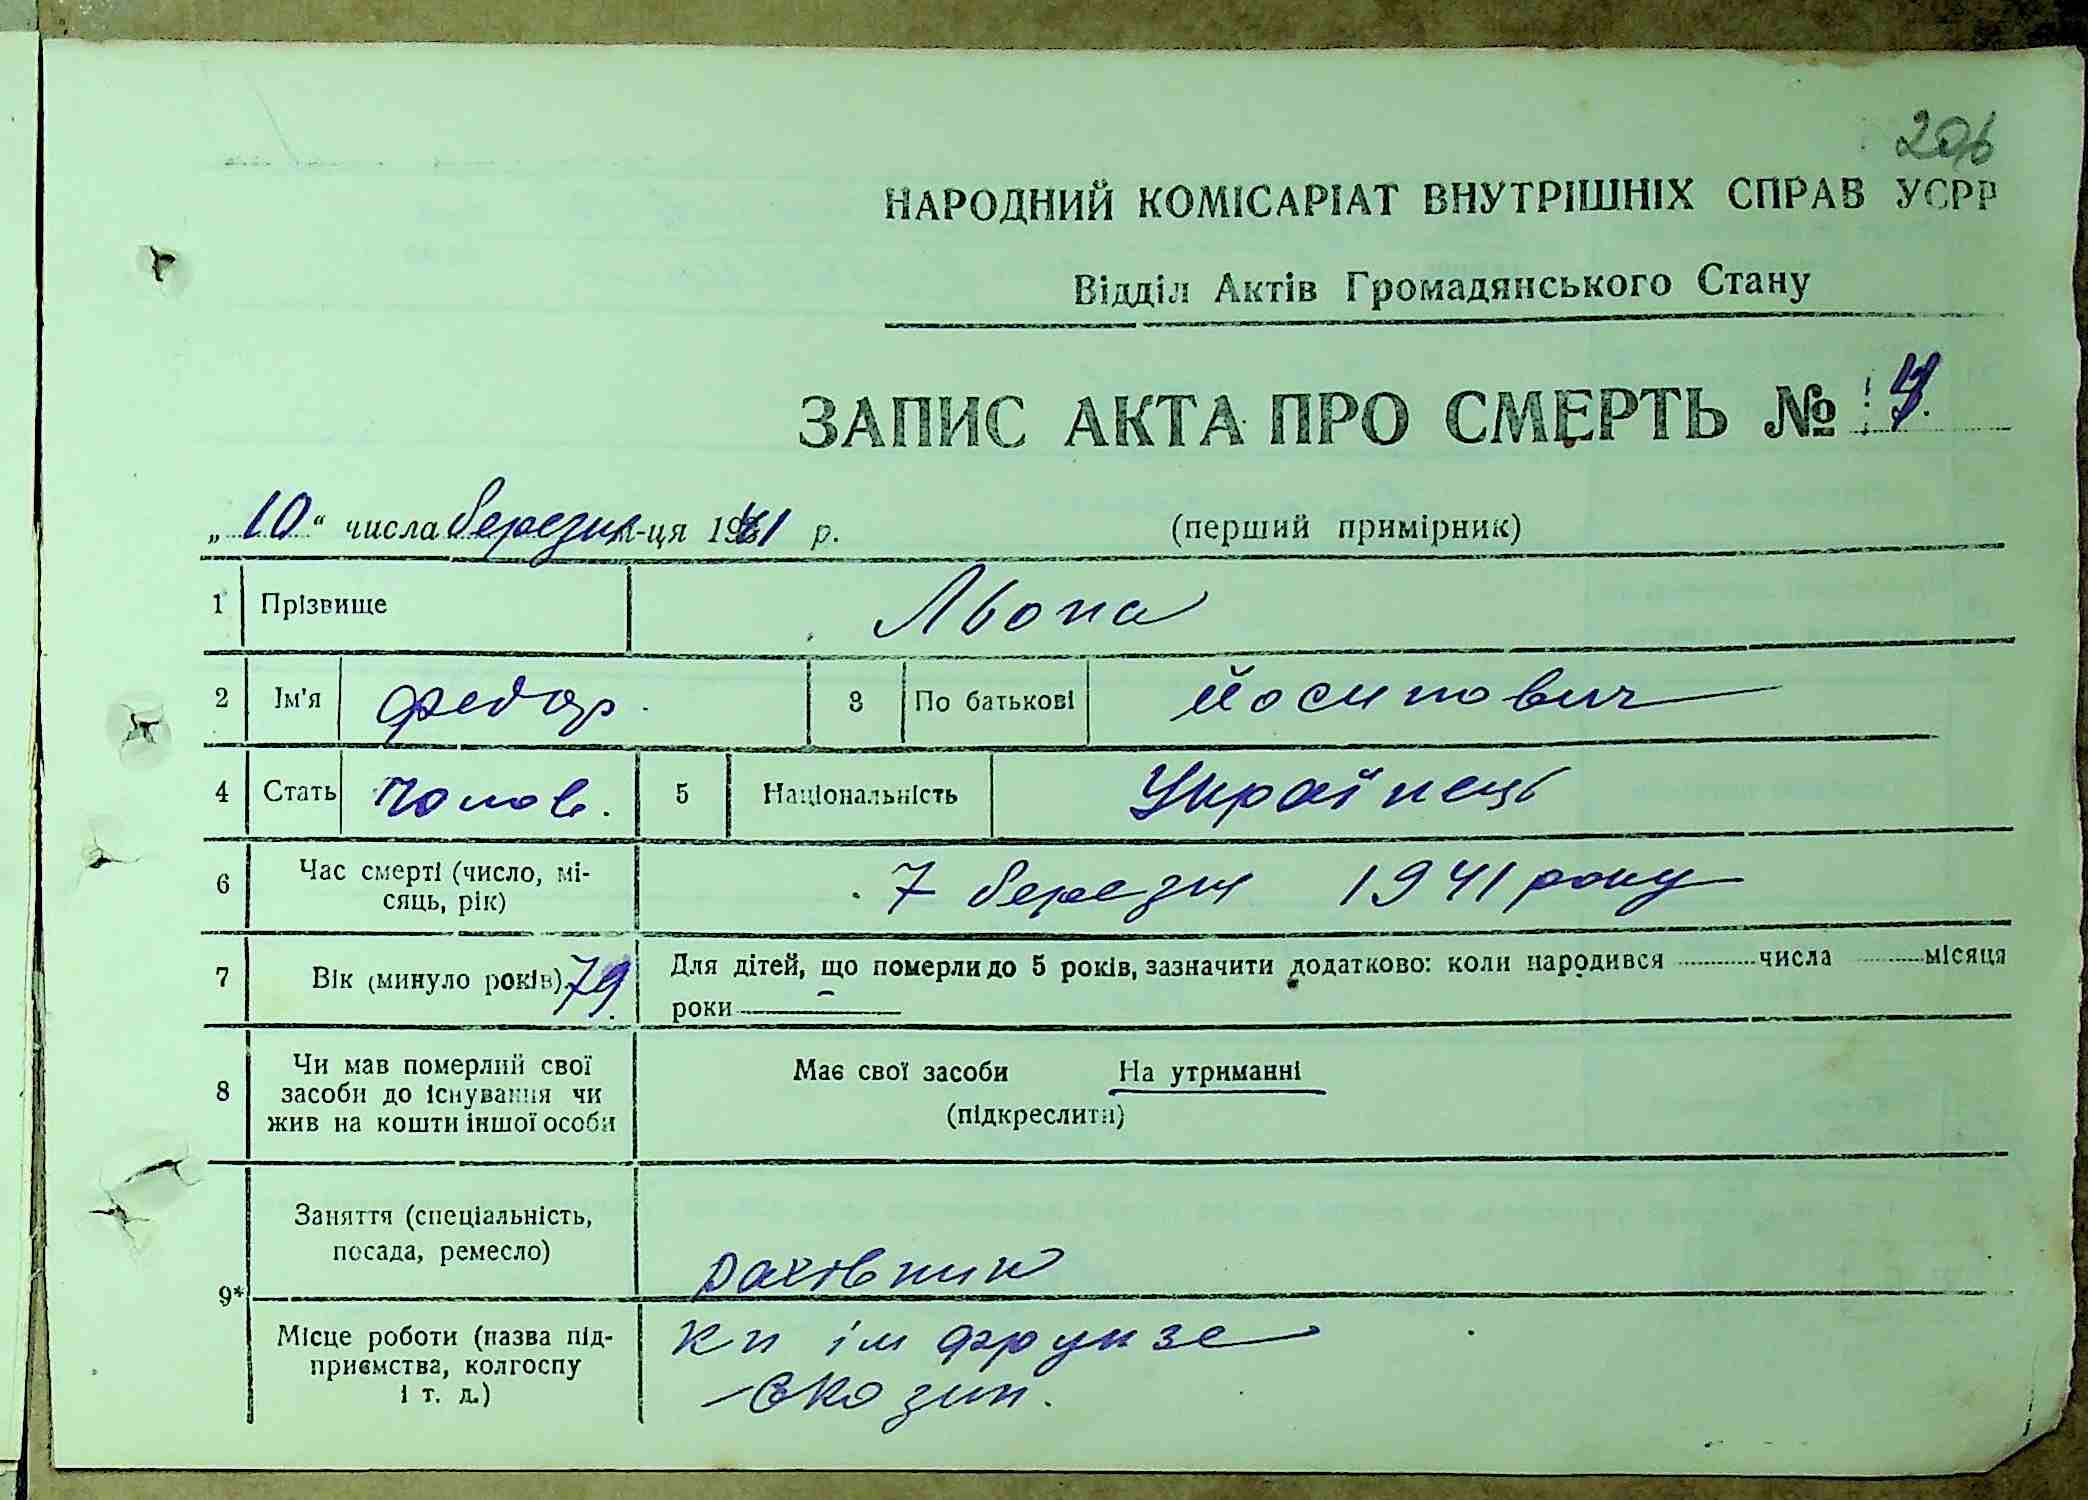 206
НАРОДНИЙ КОМІСАРІАТ ВНУТРІШНІХ СПРАВ УСРР
Відділ Актів Громадянського Стану
ЗАПИС АКТА ПРО СМЕРТЬ №
„10“ числа березня м-ця 1941 р. (перший примірник)
1 Прізвище Льопа
2 Ім'я Федор. 3 По батькові Йосипович
4 Стать Чолов. 5 Національність Українець
6 Час смерті (число, мі-
сяць, рік) 7 березня 1941 року
7 Вік (минуло років) 79. Для дітей, що померли до 5 років, зазначити додатково: коли народився числа місяця
роки
8 Чи мав померлий свої
засоби до існування чи
жив на кошти іншої особи
Має свої засоби На утриманні
(підкреслити)
9* Заняття (спеціальність,
посада, ремесло) рахівник
Місце роботи (назва під-
приємства, колгоспу
і т. д.)
кп ім Фрунзе